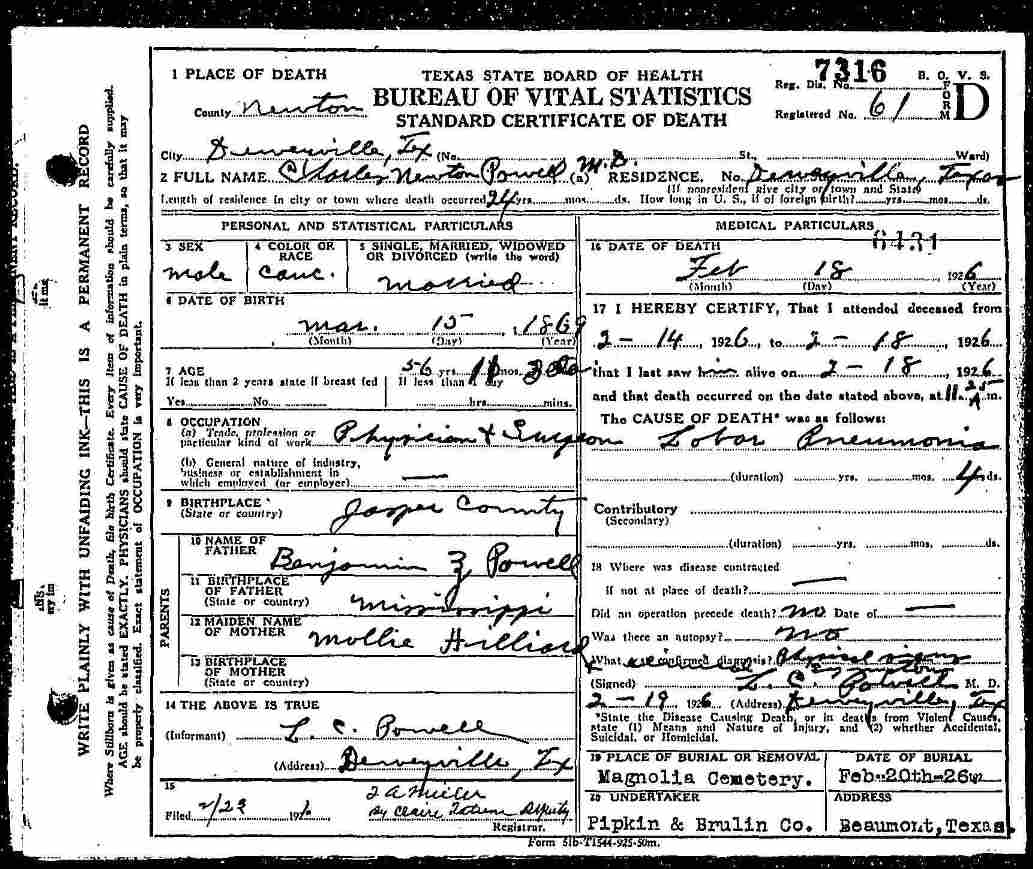 TEXAS STATE BOARD OF HEALTH
BUREAU OF VITAL STATISTICS
STANDARD CERTIFICATE OF DEATH
Reg. Dis. No. 7316 B. O. V. S.
Registered No. 61 FORM D
1 PLACE OF DEATH
County Newton
City Deweyville, Tex (No. St., Ward)
2 FULL NAME Charles Newton Powell M.D. (a) RESIDENCE. No. Deweyville, Texas
(If nonresident give city or town and State)
Length of residence in city or town where death occurred 24 yrs. mos. ds. How long in U. S., if of foreign birth? yrs. mos. ds.
PERSONAL AND STATISTICAL PARTICULARS
3 SEX
male
4 COLOR OR RACE
Cauc.
5 SINGLE, MARRIED, WIDOWED
OR DIVORCED (write the word)
married
6 DATE OF BIRTH
mar. 15, 1869
(Month) (Day) (Year)
7 AGE 56 yrs. 11 mos. 3 ds
If less than 2 years state if breast fed
Yes No
If less than 1 day
hrs. mins.
8 OCCUPATION
(a) Trade, profession or
particular kind of work Physician & Surgeon
(b) General nature of industry,
business or establishment in
which employed (or employer) —
9 BIRTHPLACE
(State or country) Jasper County
PARENTS
10 NAME OF
FATHER Benjamin Z Powell
11 BIRTHPLACE
OF FATHER
(State or country) Mississippi
12 MAIDEN NAME
OF MOTHER Mollie Hilliard
13 BIRTHPLACE
OF MOTHER
(State or country)
14 THE ABOVE IS TRUE
(Informant) L. C. Powell
(Address) Deweyville, Tex
15
Filed 2/23 191
By Claire Deputy
Registrar.
MEDICAL PARTICULARS
6431
16 DATE OF DEATH
Feb 18 1926
(Month) (Day) (Year)
17 I HEREBY CERTIFY, That I attended deceased from
2 - 14, 1926, to 2 - 18, 1926
that I last saw him alive on 2 - 18, 1926
and that death occurred on the date stated above, at 11.25 A m.
The CAUSE OF DEATH* was as follows:
Lobar Pneumonia
(duration) yrs. mos. 4 ds.
Contributory
(Secondary)
(duration) yrs. mos. ds.
18 Where was disease contracted
If not at place of death? —
Did an operation precede death? no Date of —
Was there an autopsy? no
What confirmed diagnosis? Physical signs
& symptoms
(Signed) L. C. Powell M. D.
2 - 19 1926 (Address) Deweyville, Tex
*State the Disease Causing Death, or in deaths from Violent Causes,
state (1) Means and Nature of Injury, and (2) whether Accidental,
Suicidal, or Homicidal.
19 PLACE OF BURIAL OR REMOVAL
Magnolia Cemetery.
DATE OF BURIAL
Feb-20th-26
20 UNDERTAKER
Pipkin & Brulin Co.
ADDRESS
Beaumont, Texas.
Form 51b-T1544-925-50m.
WRITE PLAINLY WITH UNFADING INK—THIS IS A PERMANENT RECORD
Where Stillborn is given as cause of Death, file birth Certificate. Every item of information should be carefully supplied.
AGE should be stated EXACTLY. PHYSICIANS should state CAUSE OF DEATH in plain terms, so that it may
be properly classified. Exact statement of OCCUPATION is very important.